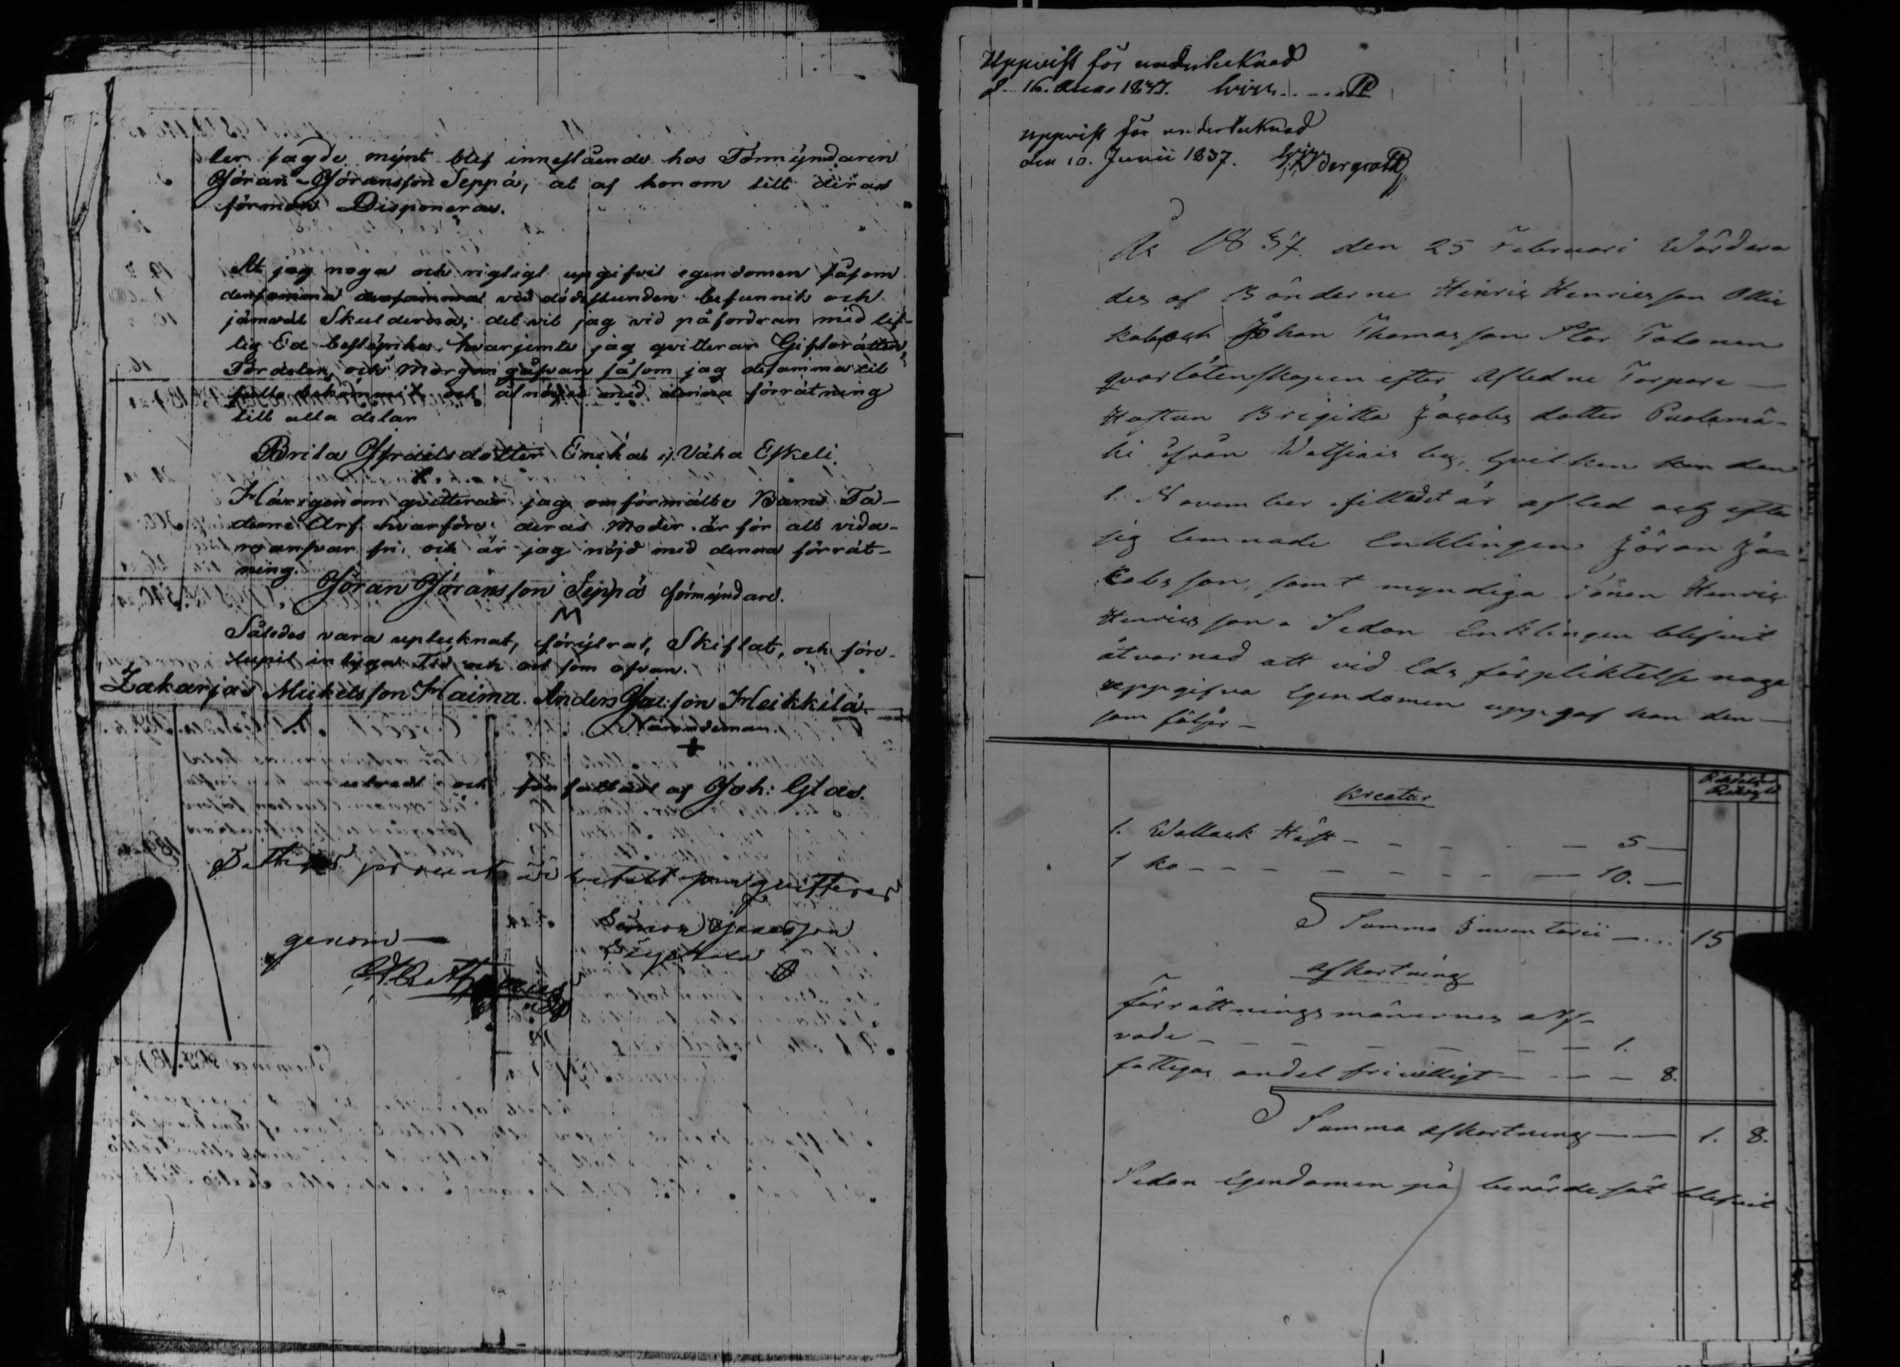 ler sagde mÿnt blef innestående hos Förmÿndaren
Jöran Jöransson Seppä, at af honom till deras
förmon Disponeras.
At jag noga och rigtigt upgifvit egendomen såsom
densamma vid dödsstunden befunnits och
jämväl Skulderna; det vil jag vid påfordran med lif-
lig Ed bestÿrka. hvarjemte jag qvitterar Giftorätten,
Fördelen, och Morgongåfvan såsom jag desamma til
fullo bekommit och är nöjd med denna förrätning
till alla delar
Brita Israelsdotter Enckas i Vähä Eskeli.
Härigenom qvitterar jag omförmälte Barns Fä-
derne Arf hvarföre deras Moder är för all vida-
re ansvar fri, och är jag nöjd med denna förrät-
ning.
Jöran Jöransson Seppä förmÿndare.
Således vara uptecknat, förÿtrat, Skiftat, och före-
lupit intÿgar Tid och ort som ofvan.
Zakarjas Mickelsson Haima. Anders Jac:son Heikkilä.
Nämndeman.
utredt och författadt af Joh: Glas.
Fattiges procent är betalt som qvitteras
genom
Simon
Uppvist för undertecknad
d. 16. 1837.
Uppvist för undertecknad
den 10. Junii 1837. Bergroth
År 1837 den 25 Februari Wärdera
des af Bönderne Henric Henricsson Ollic
kala och Johan Thomasson Stor Tolonen
qvarlåtenskapen efter Afledne Torpare
Hustrun Brigitta Jacobs dotter Puolamä-
ki ifrån hvilken den
1 November afled och efter
sig lemnade Enklingen Jöran Ja-
cobsson, samt myndiga Sonen Henric
Henricsson. Sedan Enklingen blefvit
åtvarnad att vid Eds förpliktelse noga
uppgifva Egendomen uppgaf han den
som följer
Kreatur
1. Wallack Häst 5
1 ko 10.
Summa Inventarii 15
Afkortning
Förrättningsmännernes arf-
vode 1.
fattigas andel frivilligt 8.
Summa afkortning 1. 8.
Sedan Egendomen på berörde sät blefvit